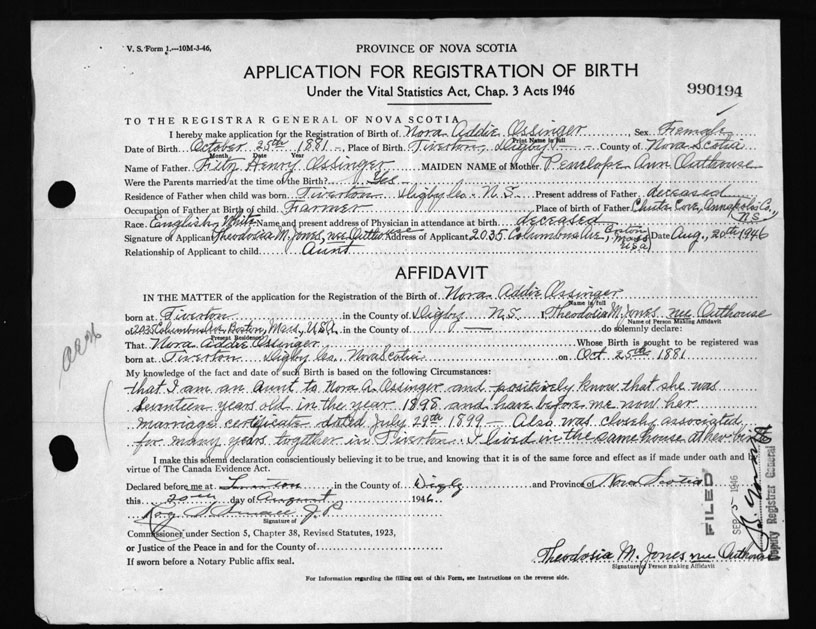 V. S. Form 1.—10M-3-46,
PROVINCE OF NOVA SCOTIA
APPLICATION FOR REGISTRATION OF BIRTH
Under the Vital Statistics Act, Chap. 3 Acts 1946
990194
TO THE REGISTRAR GENERAL OF NOVA SCOTIA
I hereby make application for the Registration of Birth of Nora Addie Ossinger, Sex Female
Print Name in full
Date of Birth October 25th 1881 - Place of Birth Tiverton, Digby - County of Nova Scotia
Month Date Year
Name of Father Henry Ossinger MAIDEN NAME of Mother Penelope Ann Outhouse
Were the Parents married at the time of the Birth? Yes -
Residence of Father when child was born Tiverton Digby Co. N.S. Present address of Father deceased
Occupation of Father at Birth of child Farmer Place of birth of Father Chute Cove, Annapolis Co., N.S.
Race English White Name and present address of Physician in attendance at birth deceased
Signature of Applicant Theodosia M. Jones, nee Outhouse Address of Applicant 2035 Columbus Ave, Boston, Mass USA Date Aug, 20th 1946
Relationship of Applicant to child Aunt
AFFIDAVIT
IN THE MATTER of the application for the Registration of the Birth of Nora Addie Ossinger
Name in full
born at Tiverton in the County of Digby N.S. I, Theodosia M. Jones nee Outhouse
Name of Person Making Affidavit
of 2035 Columbus Ave, Boston, Mass, USA, in the County of — do solemnly declare:
Present Residence
That Nora Addie Ossinger Whose Birth is sought to be registered was
born at Tiverton Digby Co. Nova Scotia on Oct 25th 1881
My knowledge of the fact and date of such Birth is based on the following Circumstances:
that I am an Aunt to Nora A. Ossinger and positively know that she was
Seventeen years old in the year 1898 and have before me now her
marriage certificate dated July 29th 1899 - Also was closely associated
for many years together in Tiverton. I lived in the same house at her birth
I make this solemn declaration conscientiously believing it to be true, and knowing that it is of the same force and effect as if made under oath and in
virtue of The Canada Evidence Act.
Declared before me at in the County of Digby and Province of Nova Scotia
this 20th day of August 1946.
J.P.
Signature of
Commissioner under Section 5, Chapter 38, Revised Statutes, 1923,
or Justice of the Peace in and for the County of
If sworn before a Notary Public affix seal.
Theodosia M. Jones nee Outhouse
Signature of Person making Affidavit
For Information regarding the filling out of this Form, see Instructions on the reverse side.
FILED
SEP 5 1946
Deputy Registrar General